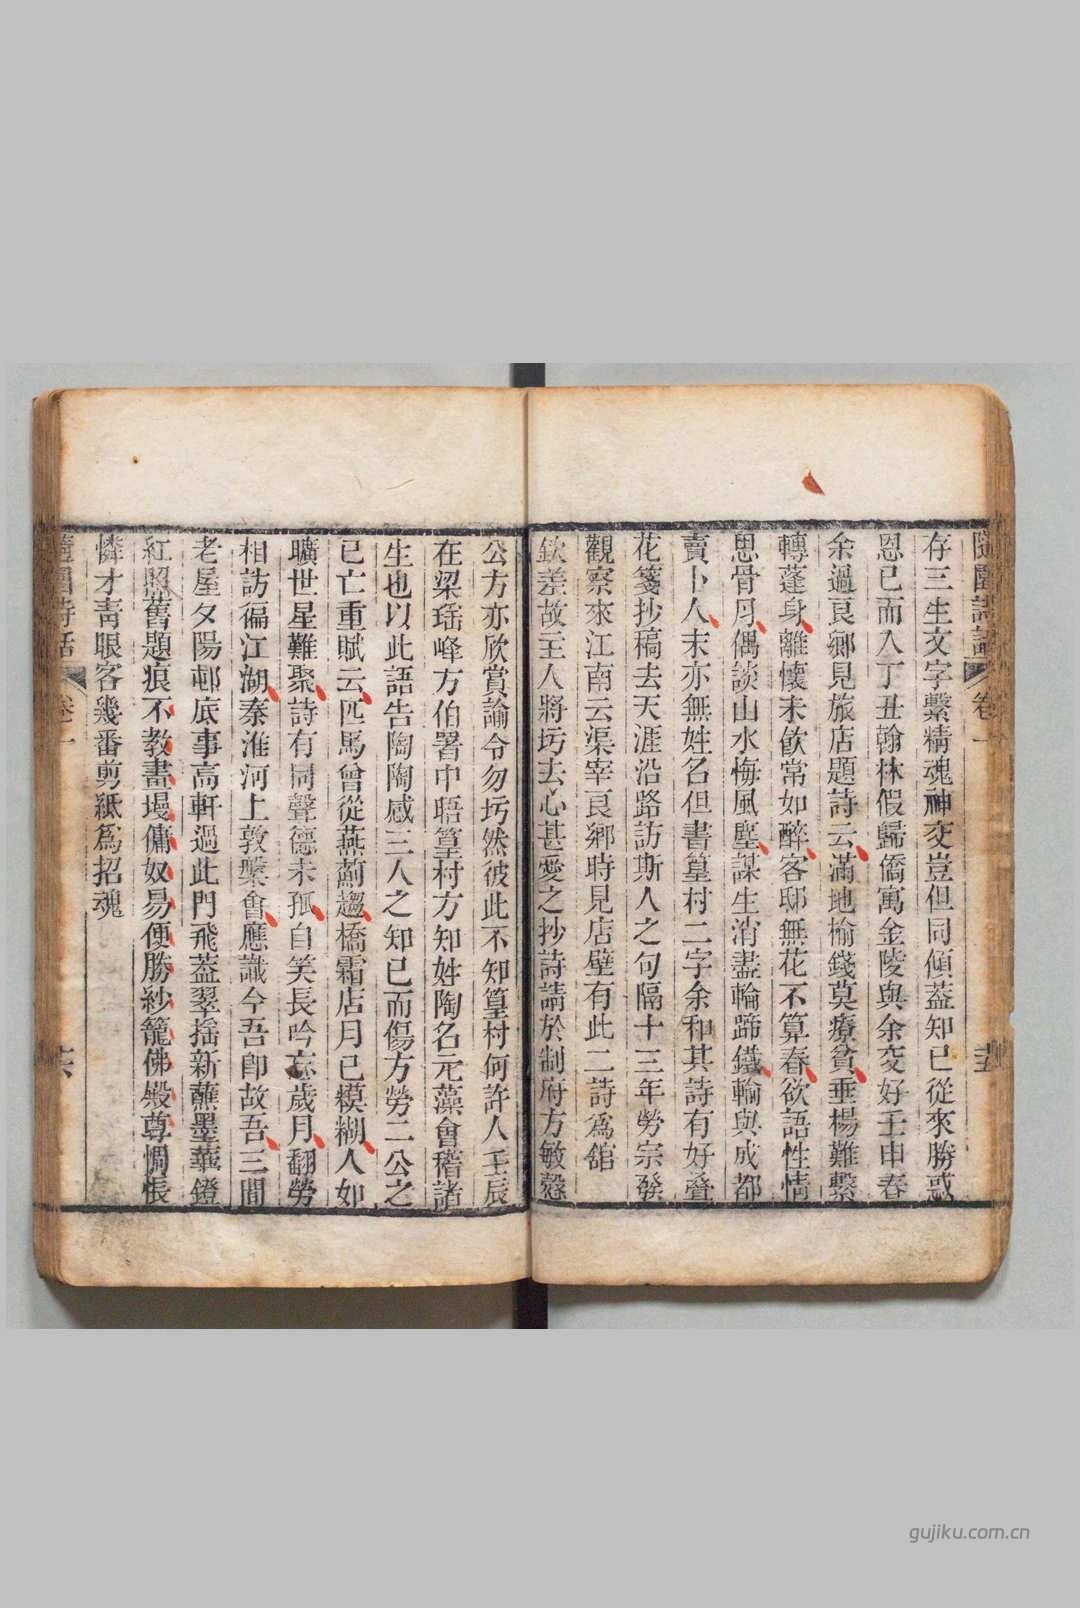 隨園詩話 卷一 十五
存三生文字繫精魂神交豈但同傾蓋知已從來勝感
恩已而入丁丑翰林假歸僑寓金陵與余交好壬申春
余過良鄉見旅店題詩云滿地榆錢莫療貧垂楊難繫
轉蓬身離懷未飲常如醉客邸無花不算春欲語性情
思骨肉偶談山水悔風塵謀生消盡輪蹄鐵輸與成都
賣卜人末亦無姓名但書篁村二字余和其詩有好疊
花箋抄稿去天涯沿路訪斯人之句隔十三年勞宗發
觀察來江南云渠宰良鄉時見店壁有此二詩爲舘
欽差故主人將圬去心甚愛之抄詩請於制府方敏慤
公方亦欣賞諭令勿圬然彼此不知篁村何許人壬辰
在梁瑤峰方伯署中晤篁村方知姓陶名元藻會稽諸
生也以此語告陶陶感三人之知已而傷方勞二公之
已亡重賦云匹馬曾從燕薊趨橋霜店月已糢糊人如
曠世星難聚詩有同聲德未孤自笑長吟忘歲月翻勞
相訪徧江湖秦淮河上敦槃會應識今吾卽故吾三間
老屋夕陽邨底事高軒過此門飛蓋翠搖新蘸墨華鐙
紅照舊題痕不教畫墁傭奴易便勝紗籠佛殿尊惆悵
憐才靑眼客幾番剪紙爲招魂
隨園詩話 卷一 十六
gujiku.com.cn